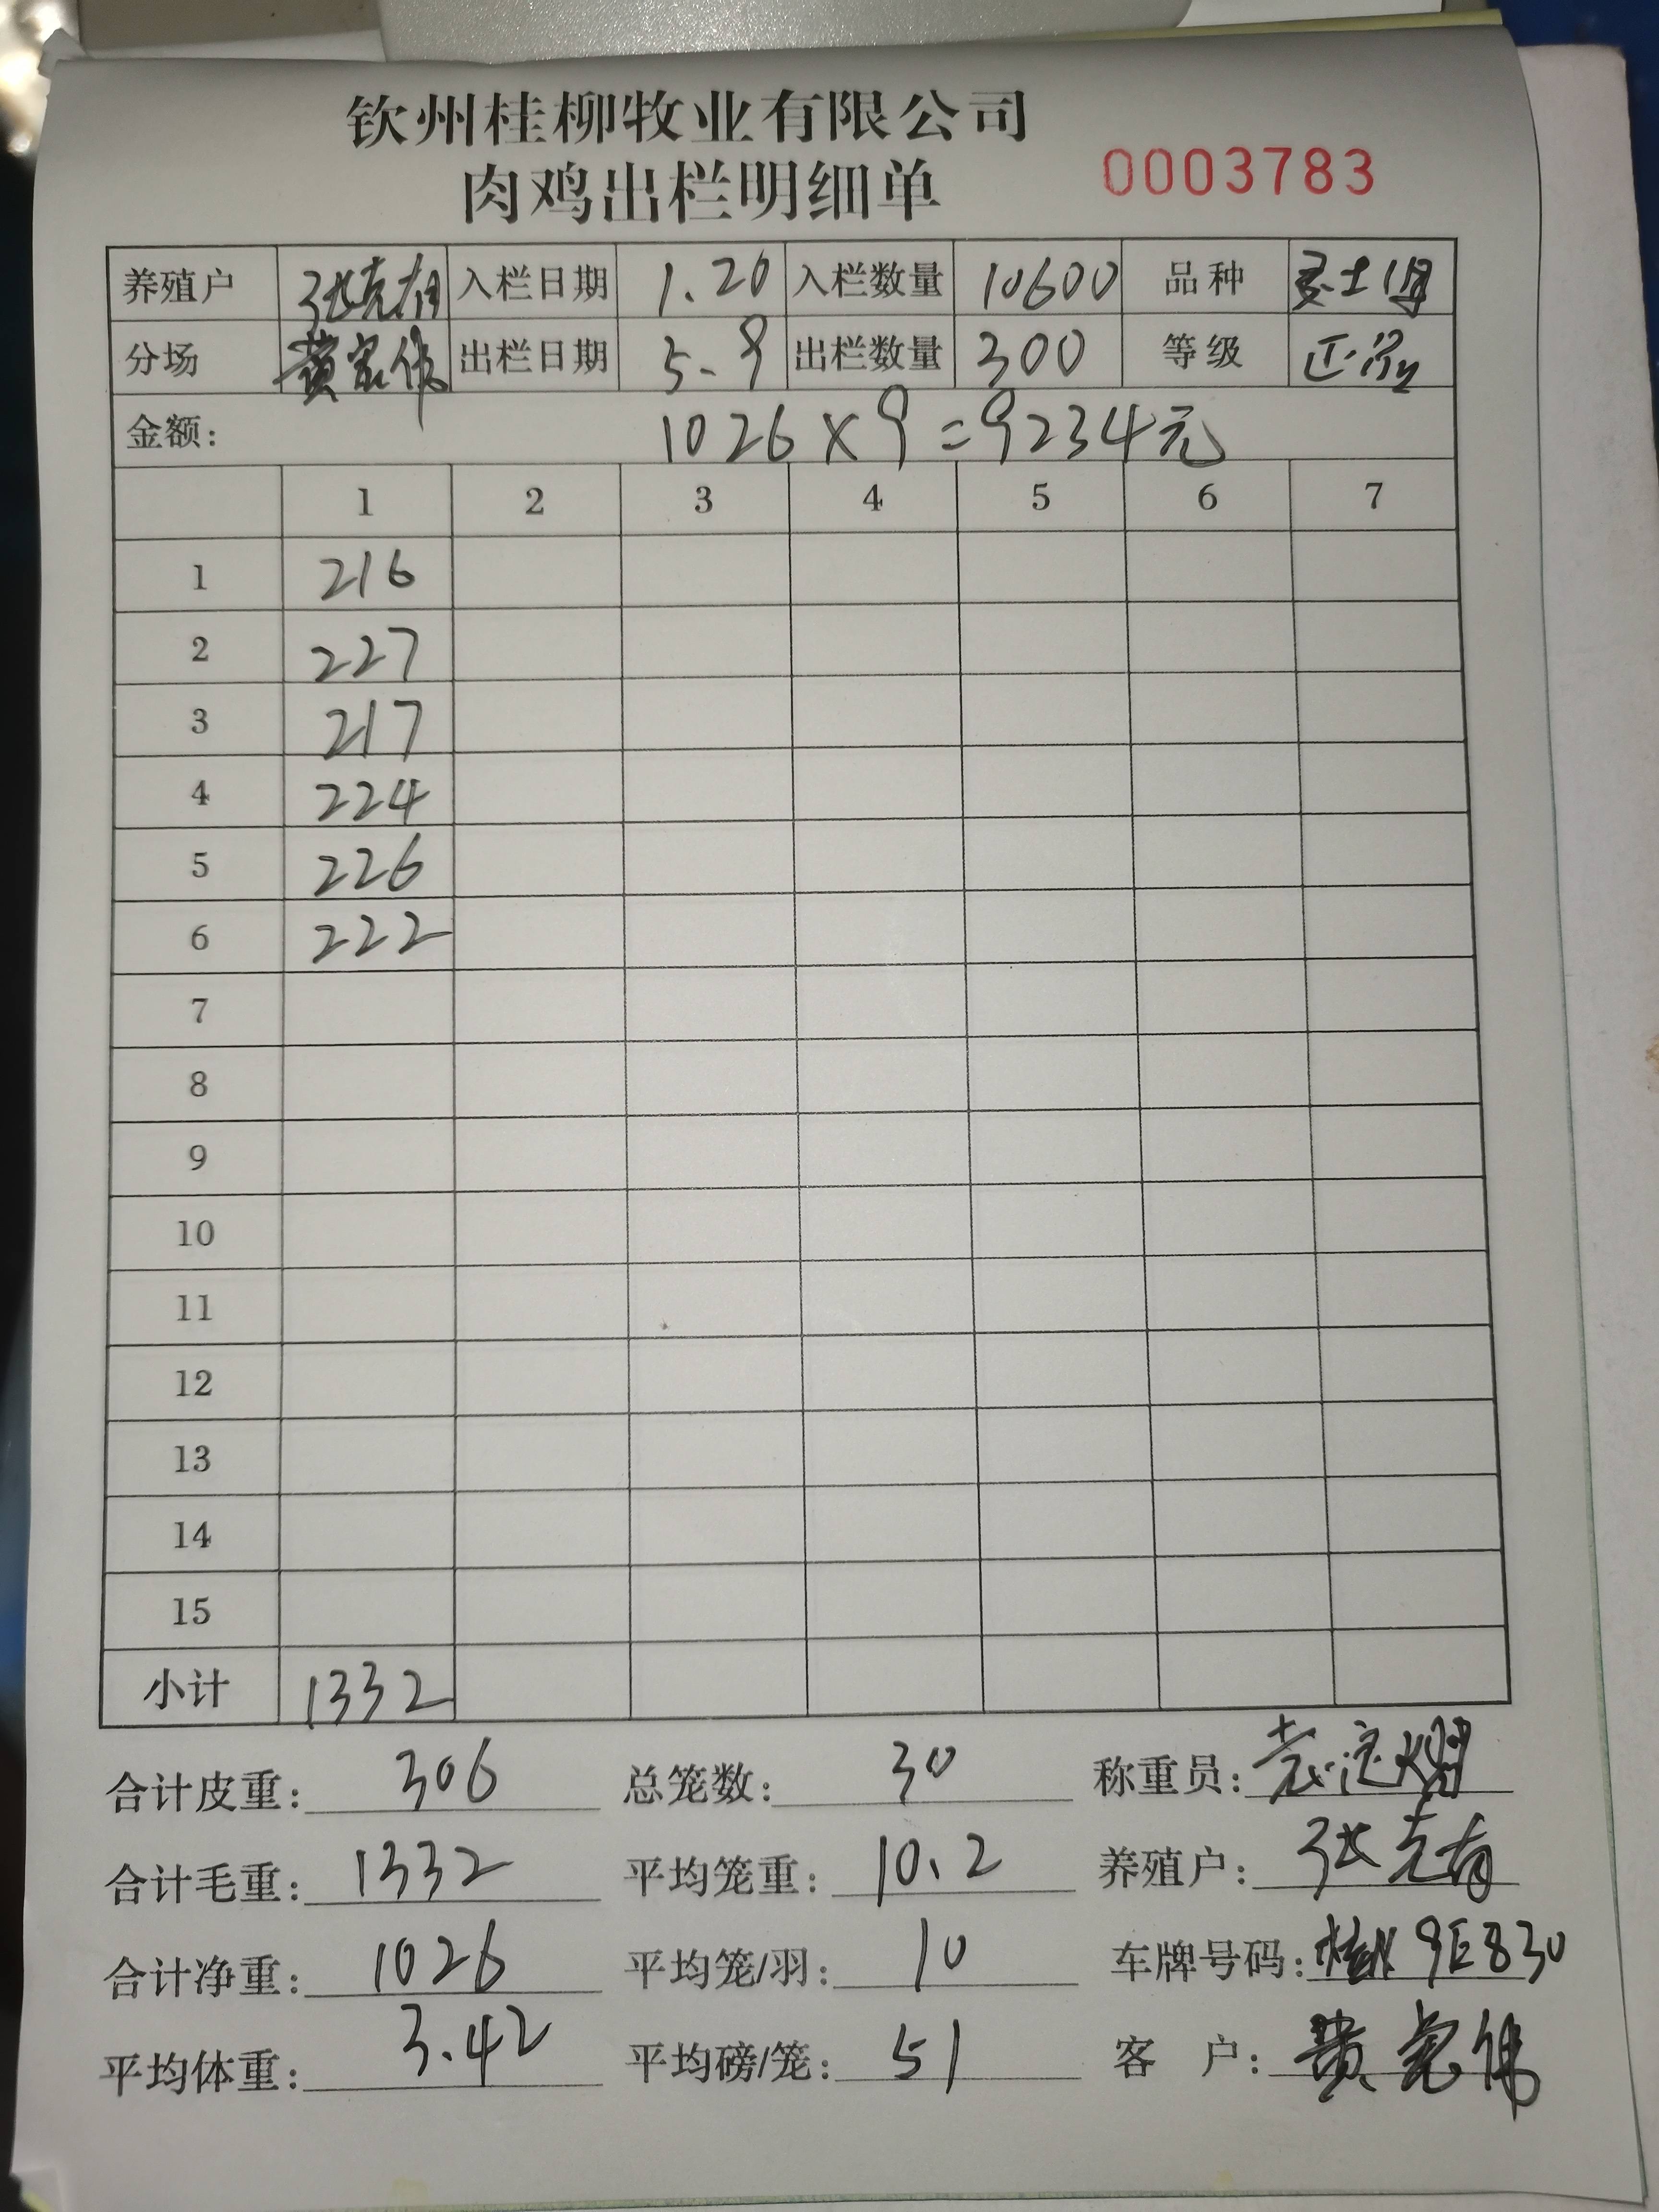 钦州桂柳牧业有限公司
肉鸡出栏明细单 0003783
养殖户 张克有 入栏日期 1.20 入栏数量 10600 品种 土
分场 黄家 出栏日期 5.9 出栏数量 300 等级 正
金额: 1026×9=9234元
1 2 3 4 5 6 7
1 216
2 227
3 217
4 224
5 226
6 222
7
8
9
10
11
12
13
14
15
小计 1332
合计皮重: 306 总笼数: 30 称重员:
合计毛重: 1332 平均笼重: 10.2 养殖户: 张克有
合计净重: 1026 平均笼/羽: 10 车牌号码: 9E830
平均体重: 3.42 平均磅/笼: 51 客 户: 黄